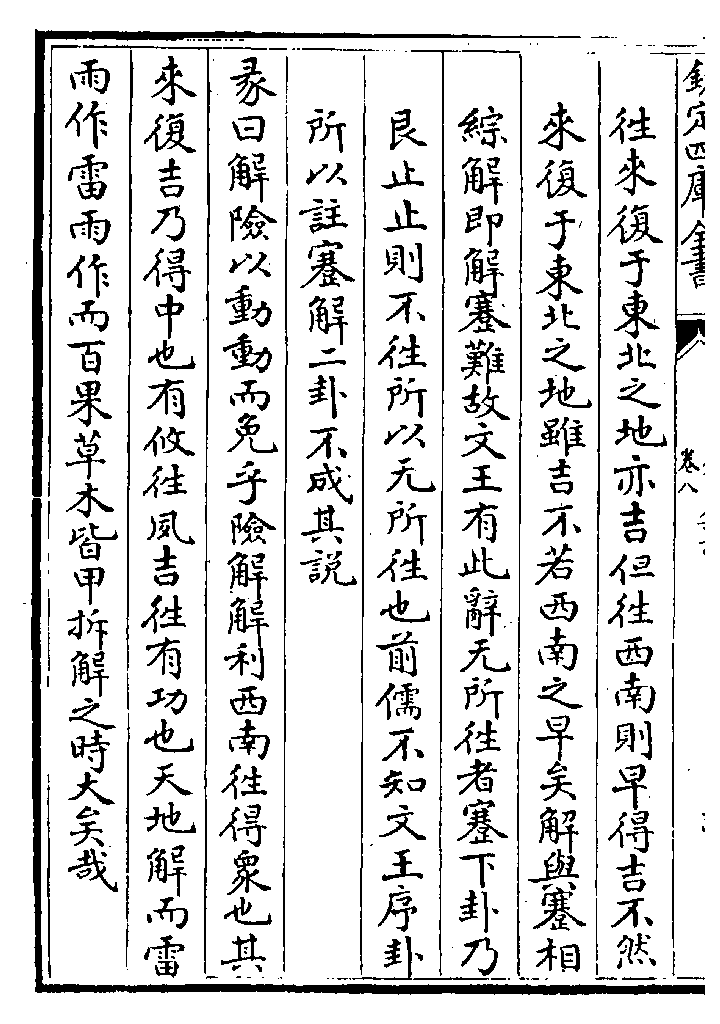 欽定四庫全書
卷八
往來復于東北之地亦吉但往西南則早得吉不然
來復于東北之地雖吉不若西南之早矣解與蹇相
綜解即解蹇難故文王有此辭无所往者蹇下卦乃
艮止止則不往所以无所往也前儒不知文王序卦
所以註蹇解二卦不成其説
彖曰解險以動動而免乎險解解利西南往得衆也其
來復吉乃得中也有攸往夙吉往有功也天地解而雷
雨作雷雨作而百果草木皆甲拆解之時大矣哉